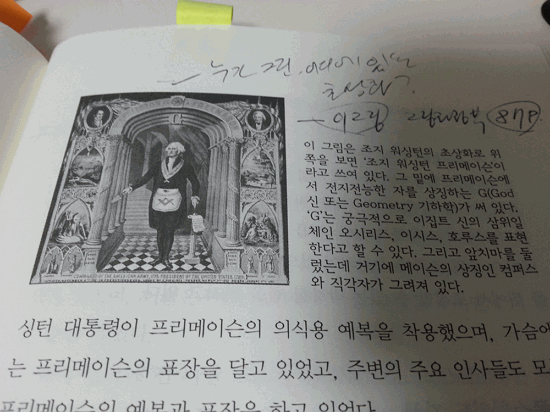 누가 그린, 어디에 있는
초상화?
이그림 87P
G
COMMANDER OF THE AMERICAN ARMY, 1775. PRESIDENT OF THE UNITED STATES, 1789.
이 그림은 조지 워싱턴의 초상화로 위
쪽을 보면 '조지 워싱턴 프리메이슨이
라고 쓰여 있다. 그 밑에 프리메이슨에
서 전지전능한 자를 상징하는 G(God
신 또는 Geometry 기하학)가 써 있다.
'G'는 궁극적으로 이집트 신의 삼위일
체인 오시리스, 이시스, 호루스를 표현
한다고 할 수 있다. 그리고 앞치마를 둘
렀는데 거기에 메이슨의 상징인 컴퍼스
와 직각자가 그려져 있다.
싱턴 대통령이 프리메이슨의 의식용 예복을 착용했으며, 가슴에
는 프리메이슨의 표장을 달고 있었고, 주변의 주요 인사들도 모
프리메이슨의 예복과 표장을 하고 있었다.